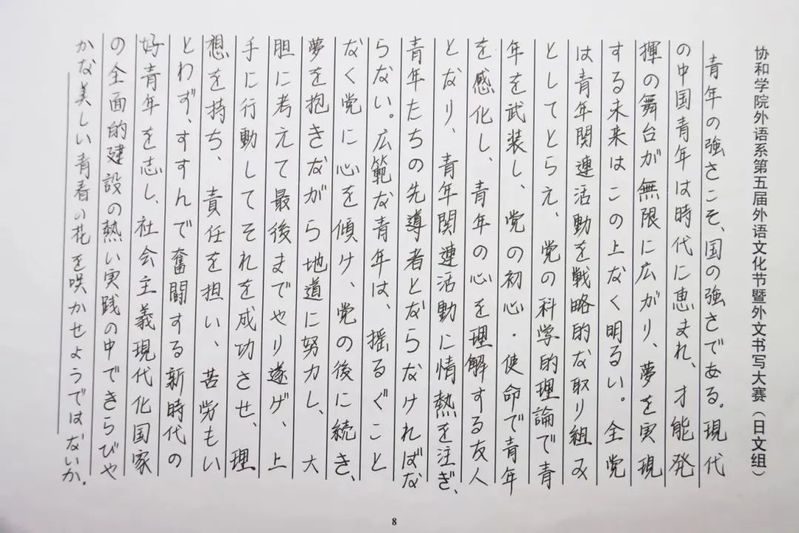 协和学院外语系第五届外语文化节暨外文书写大赛（日文组）
青年の強さこそ、国の強さである。現代
の中国青年は時代に恵まれ、才能発
揮の舞台が無限に広がり、夢を実現
する未来はこの上なく明るい。全党
は青年関連活動を戦略的な取り組み
としてとらえ、党の科学的理論で青
年を武装し、党の初心・使命で青年
を感化し、青年の心を理解する友人
となり、青年関連活動に情熱を注ぎ、
青年たちの先導者とならなければな
らない。広範な青年は、揺るぐこと
なく党に心を傾け、党の後に続き、
夢を抱きながら地道に努力し、大
胆に考えて最後までやり遂げ、上
手に行動してそれを成功させ、理
想を持ち、責任を担い、苦労もい
とわず、すすんで奮闘する新時代の
好青年を志し、社会主義現代化国家
の全面的建設の熱い実践の中できらびや
かな美しい青春の花を咲かせようではないか。
8